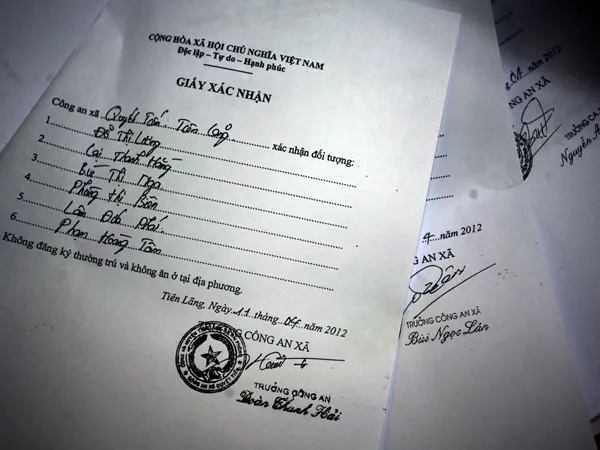 CỘNG HÒA XÃ HỘI CHỦ NGHĨA VIỆT NAM
Độc lập – Tự do – Hạnh phúc
GIẤY XÁC NHẬN
Công an xã Quyết Tiến Tiên Lãng xác nhận đối tượng:
1. Đỗ Thị Lương
2. Lại Thanh Hằng
3. Bùi Thị Nga
4. Phạm Thị Bền
5. Lâm
6. Phạm Hồng Tâm
Không đăng ký thường trú và không ăn ở tại địa phương.
Tiên Lãng, Ngày 11 tháng 04 năm 2012
CÔNG AN XÃ
TRƯỞNG CÔNG AN
Đoàn Thanh Hải
4 năm 2012
G AN XÃ
TRƯỞNG CÔNG AN XÃ
Bùi Ngọc Lân
năm 2012
G AN XÃ
TRƯỞNG CA
Nguyễn